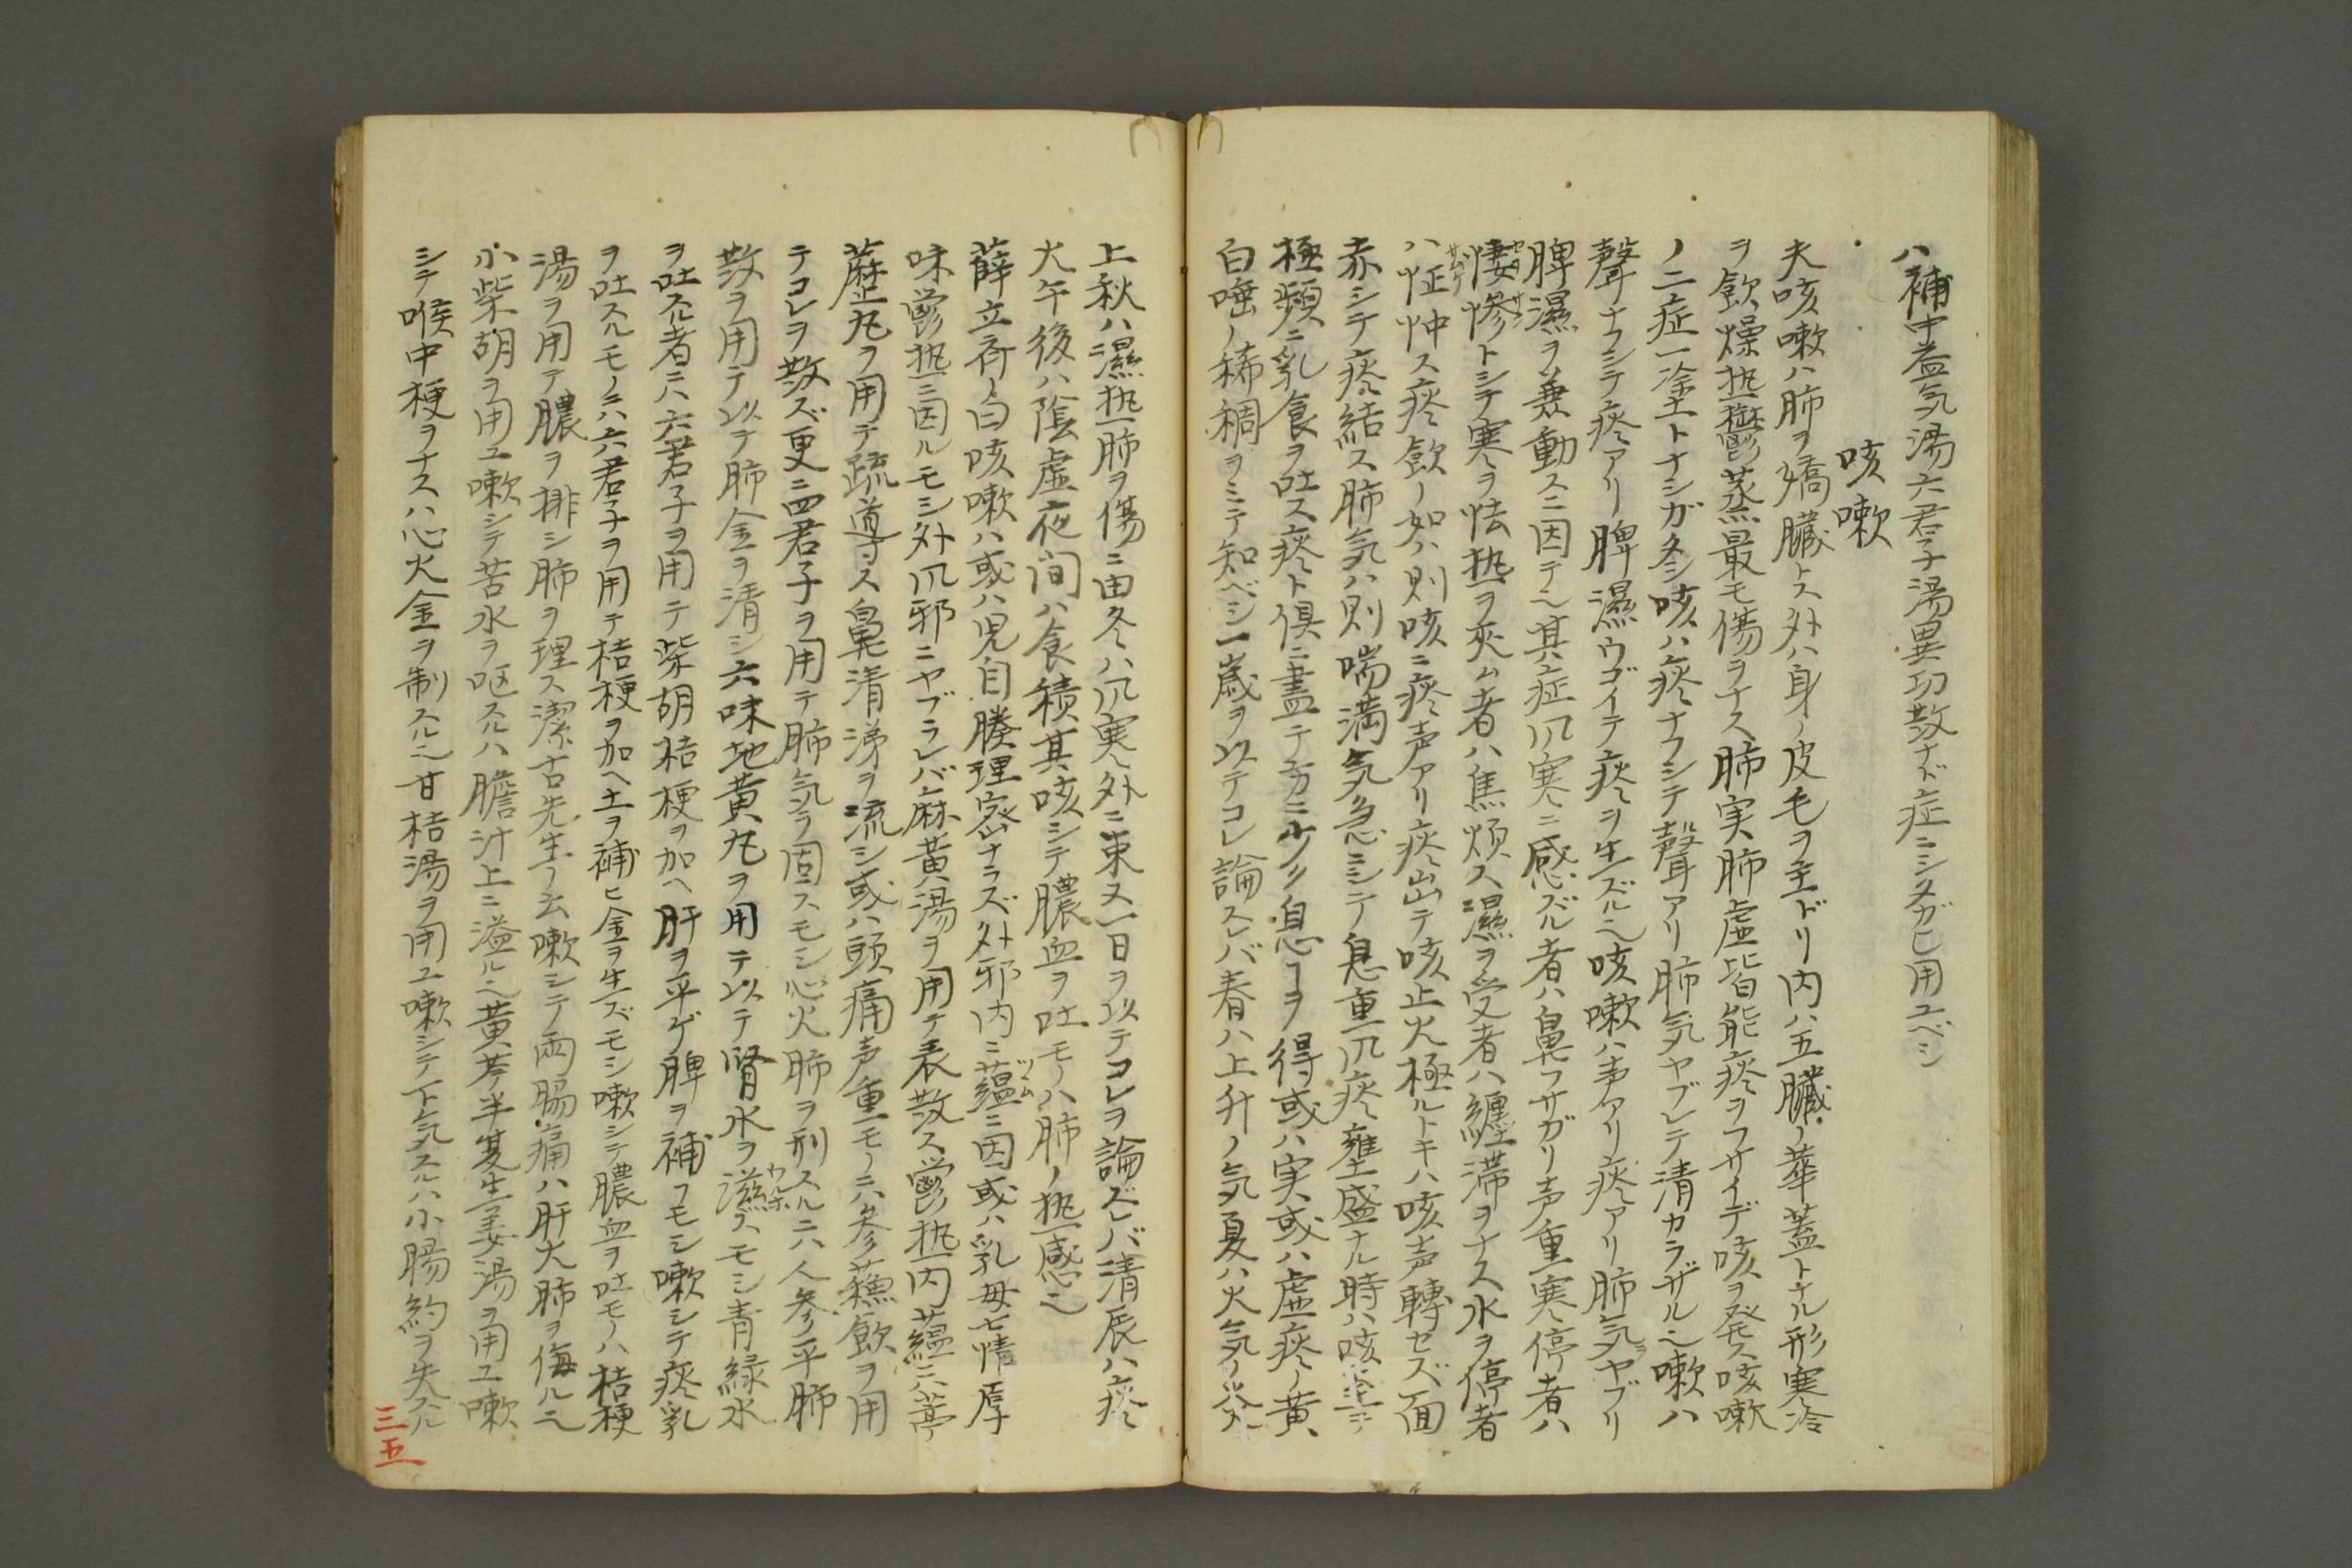 ハ補中益気湯六君子湯異功散ナド症ニシタガヒ用ユベシ
咳嗽
夫咳嗽ハ肺ヲ嬌臓トス外ハ身ノ皮毛ヲ主ドリ内ハ五臓ノ華蓋トナル形寒冷
ヲ飲燥熱欝蒸最モ傷ヲナス肺実肺虚皆能痰ヲフサイデ咳ヲ発ス咳嗽
ノ二症一塗トナシガタシ咳ハ痰ナフシテ聲アリ肺気ヤブレテ清カラザル也嗽ハ
聲ナフシテ痰アリ脾濕ウゴイテ痰ヲ生ズル也咳嗽ハ声アリ痰アリ肺気ラヤブリ
脾濕ヲ兼動スニ因テ也其症爪寒ニ感ズル者ハ鼻フサガリ声重寒停者ハ
悽惨トシテ寒ヲ怯熱ヲ夾ム者ハ焦煩ス濕ヲ受者ハ纏滞ヲナス水ヲ停者
ハ怔忡ス痰飲ノ如ハ則咳ニ痰声アリ痰出テ咳止火極ルトキハ咳声轉セズ面
赤シテ痰結ス肺気ハ則喘満気急ニシテ息重爪痰壅盛ナル時ハ咳
極頻ニ乳食ヲ吐ス痰ト倶ニ盡テ方ニ少ク息ヿヲ得或ハ実或ハ虚痰ノ黄
白唾ノ稀稠ヲミテ知ベシ一歳ヲ以テコレ論スレバ春ハ上升ノ気夏ハ火気ノ炎
上秋ハ濕熱肺ヲ傷ニ由冬ハ爪寒外ニ束又一日ヲ以テコレヲ論ズレバ清辰ハ痰
火午後ハ陰虚夜间ハ食積其咳シテ膿血ヲ吐モノハ肺ノ熱感也
薛立斎ノ曰咳嗽ハ或ハ児自腠理密ナラズ外邪内ニ蕴ニ因或ハ乳母七情厚
味欝熱ニ因ルモシ外爪邪ニヤブラレバ麻黄湯ヲ用テ表散ス欝熱内蕴ニハ葶
藶丸ヲ用テ疏導ス鼻清涕ヲ流シ或ハ頭痛声重モノニハ参蘓飲ヲ用
テコレヲ散ズ更ニ四君子ヲ用テ肺気ヲ固スモシ心火肺ヲ刑スルニハ人参平肺
散ヲ用テ以テ肺金ヲ清シ六味地黄丸ヲ用テ以テ腎水ヲ滋スモシ青緑水
ヲ吐スル者ニハ六君子ヲ用テ柴胡桔梗ヲ加ヘ肝ヲ平ゲ脾ヲ補フモシ嗽シテ痰乳
ヲ吐スルモノニハ六君子ヲ用テ桔梗ヲ加ヘ土ヲ補ヒ金ヲ生ズモシ嗽シテ膿血ヲ吐モノハ桔梗
湯ヲ用テ膿ヲ排シ肺ヲ理ス潔古先生ノ云嗽シテ両腸痛ハ肝火肺ヲ侮ル也
小柴胡ヲ用ユ嗽シテ苦水ヲ呕スルハ膽汁上ニ溢ル也黄芩半夏生姜湯ヲ用ユ嗽
シテ喉中梗ヲナスハ心火金ヲ制スル也甘桔湯ヲ用ユ嗽シテ下気スルハ小腸約ヲ失スル
三五